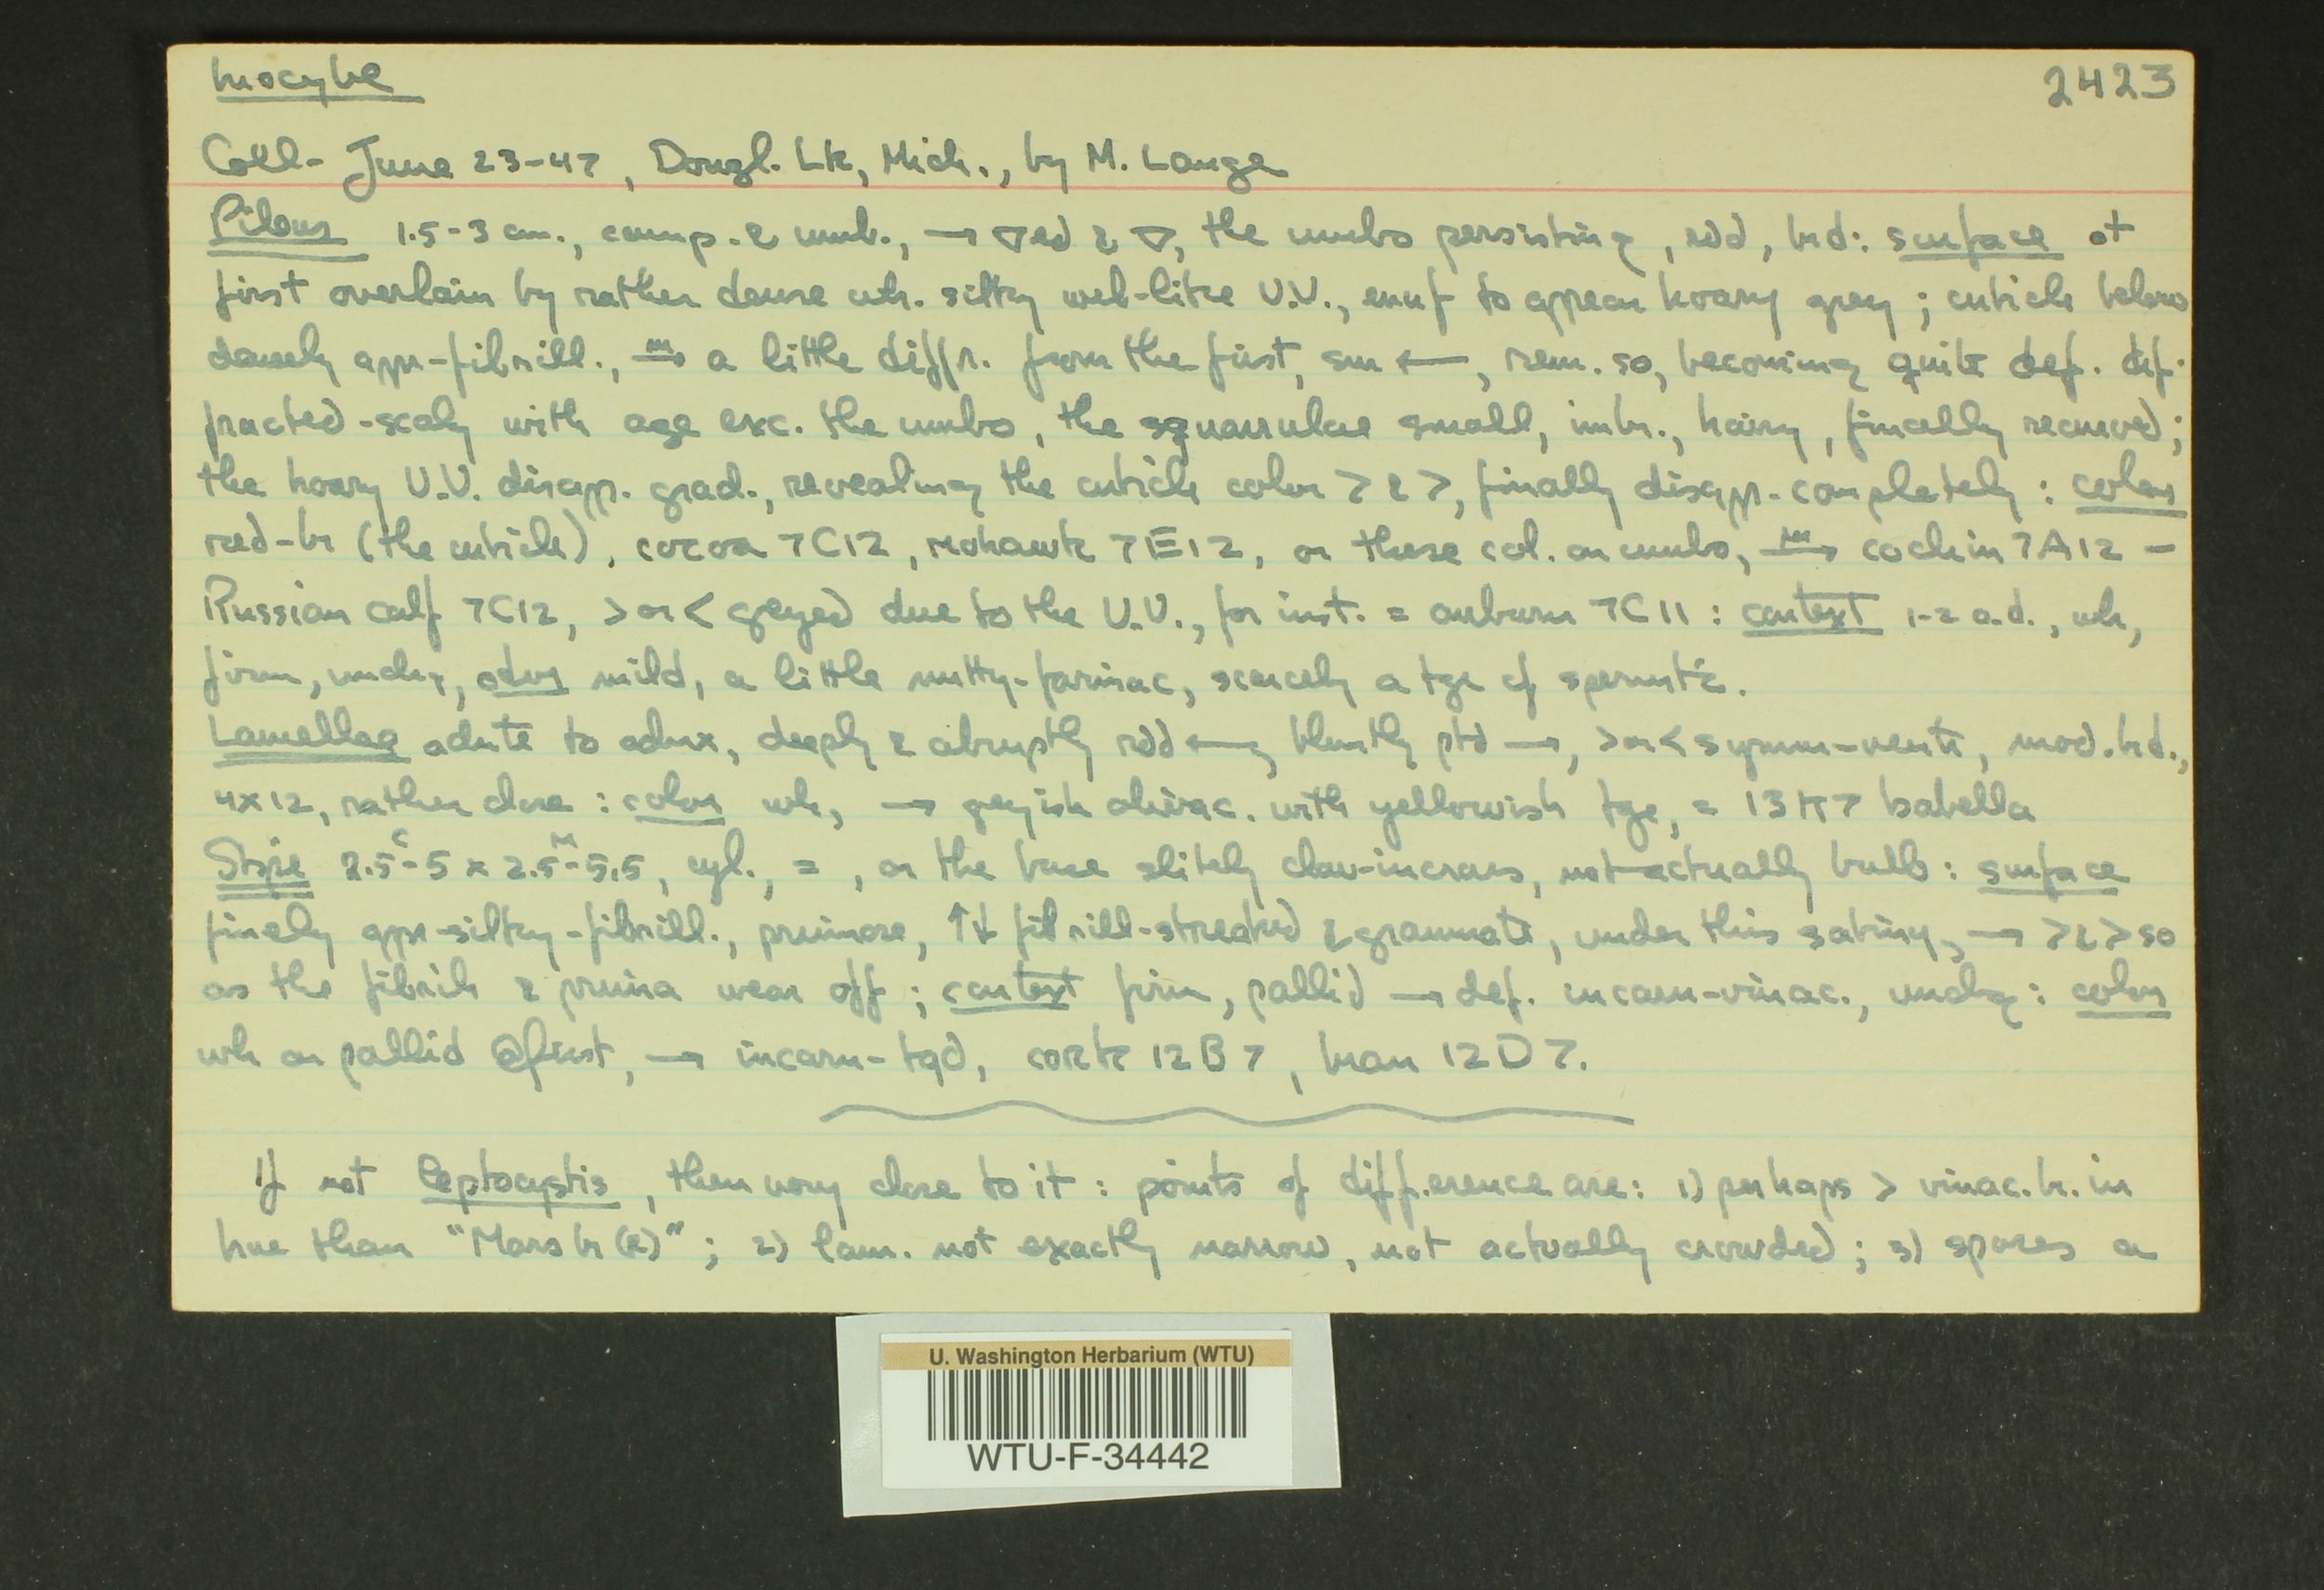 Inocybe 2423
Coll- June 23-47, Dougl. Lk, Mich., by M. Lange
Pileus 1.5-3 cm., camp. & umb., → ▽ed & ▽, the umbo persisting, rdd, brd: surface at
first overlain by rather dense wh. silky web-like U.V., enuf to appear hoary grey; cuticle below
densely appr-fibrill., →m a little diffr. from the first, sm ←, rem. so, becoming quite def. dif-
fracted-scaly with age exc. the umbo, the squamulae small, imbr., hairy, finally recurved;
the hoary U.V. disapp. grad., revealing the cuticle color > & >, finally disapp. completely: color
red-br (the cuticle), cocoa 7C12, mohawk 7E12, or these col. on umbo, →m cochin 7A12 -
Russian calf 7C12, > or < greyed due to the U.V., for inst. = auburn 7C11: context 1-2 a.d., wh,
firm, undig, odor mild, a little nutty-farinac, scarcely a tge of spermtc.
Lamellae adnte to adnx, deeply & abruptly rdd ←, bluntly ptd →, > or < symm-ventr, mod. brd.,
4x12, rather close: color wh, → greyish olivac. with yellowish tge, = 13K7 Isabella
Stipe 2.5c-5 x 2.5m-5.5, cyl., =, or the base slitely clav-incras, not actually bulb: surface
finely appr-silky-fibrill., pruinose, ↑↓ fibrill-streaked & grammate, under this satiny, → > & > so
as the fibrils & pruina wear off; context firm, pallid → def. incarn-vinac., undig: color
wh or pallid @first, → incarn-tgd, cork 12B7, bran 12D7.
If not leptocystis, then very close to it: points of diff.erence are: 1) perhaps > vinac. br. in
hue than "Mars br (R)"; 2) lam. not exactly narrow, not actually crowded; 3) spores a
U. Washington Herbarium (WTU)
WTU-F-34442